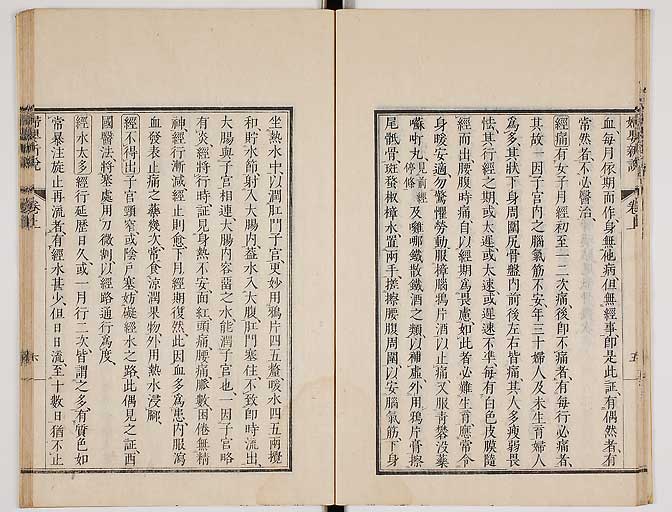 婦嬰新說
卷上
五
血每月依期而作身無他病但無經事卽是此証有偶然者有
常然者不必醫治
經痛有女子月經初至一二次痛後卽不痛者有每行必痛者
其故一因子宮內之腦氣筋不安年三十婦人及未生育婦人
為多其狀下身周圍尻骨盤內前後左右皆痛其人多瘦弱畏
怯其行經之期或太遲或太速或遲速不準每有白色皮膜隨
經而出腰腹時痛自以經期為畏慮如此者必難生育應常令
身暖安適勿驚懼勞動服樟腦鴉片酒以止痛又服靑礬沒藥
囌唹丸見前經停條及雞哪鐵散鐵酒之類以補虛外用鴉片膏擦
尾骶骨斑蝥椒樟水置兩手搓擦腰腹周圍以安腦氣筋下身
坐熱水中以潤肛門子宮更妙用鴉片四五釐暖水四五兩攪
和貯水節射入大腸內蓋水入大腹肛門塞住不致卽時流出
大腸與子宮相連大腸內容畱之水能潤子宮也一因子宮略
有炎經將行時証見身熱不安面紅頭痛腰痛脈數困倦無精
神經行漸減經止則愈下月經期復然此因血多為患內服瀉
血發表止痛之藥幾次常食涼潤果物外用熱水浸腳
經不得出子宮頸窄或陰戶塞妨礙經水之路此偶見之証西
國醫法將塞處用刀微割以經路通行為度
經水太多經行延歷日久或一月行二次皆謂之多有賫色如
常暴注旋止再流者有經水甚少但日日流至十數日猶不止
婦嬰新說
卷上
六